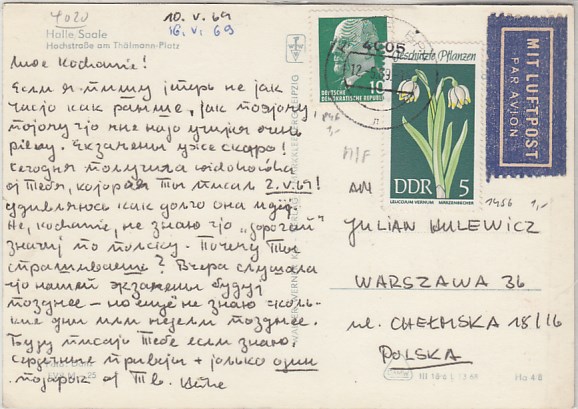 4020
10.V.69
16.VI 69
Halle Saale
Hochstraße am Thälmann-Platz
Мое Kochanie!
Если я пишу теперь не так
часто как раньше, так поэтому
что мне надо учится очень
Экзамены уже скоро!
Сегодня получила widokówka
от Тебя, которая Ты писал 2.V.69!
удивляюсь как долго она идёт.
Не, kochanie, не знаю что „
значит по польску. Почему Ты
спрашиваешь? Вчера слушала
что нашей экзамены будут
позднее – но ещё не знаю сколь-
кие дни или недели позднее.
Буду писать Тебе если знаю.
Сердечные приветы + только один
от Тв.
4005
12.5.69
10
DEUTSCHE
DEMOKRATISCHE REPUBLIK
Geschützte Pflanzen
DDR 5
LEUCOJUM VERNUM MÄRZENBECHER
MIT LUFTPOST
PAR AVION
1456 1,-
AN
JULIAN HULEWICZ
WARSZAWA 36
ul. CHEŁMSKA 18/16
POLSKA